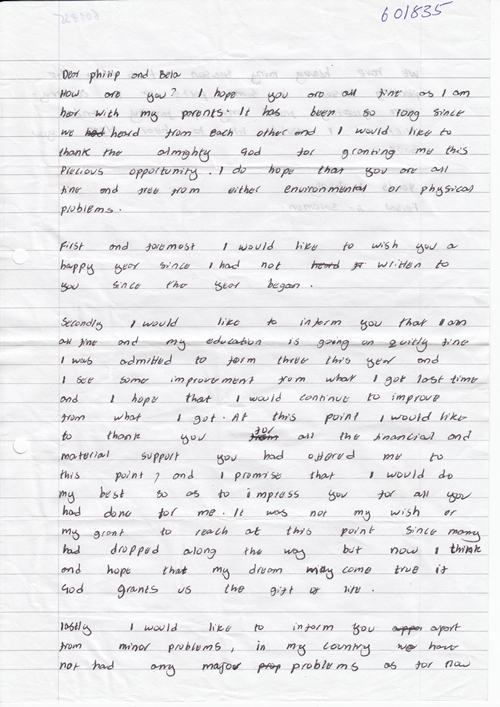 601835
Dear philip and Bela
How are you? I hope you are all fine as I am
her with my parents. It has been so long since
we had heard from each other and I would like to
thank the almighty God for granting me this
Precious opportunity. I do hope that you are all
fine and free from either environmental or physical
problems.
First and foremost I would like to wish you a
happy year since I had not heard fr written to
you since the year began.
Secondly I would like to inform you that I am
all fine and my education is going on quitly fine
I was admitted to form three this year and
I see some improvement from what I got last time
and I hope that I would continue to improve
from what I got. At this point I would like
to thank you from for all the financial and
material support you had offered me to
this point, and I promise that I would do
my best so as to impress you for all you
had done for me. It was not my wish or
my grant to reach at this point since many
had dropped along the way but now I think
and hope that my dream may come true if
God grants us the gift of life.
lastly I would like to inform you appar apart
from minor problems, in my country we have
not had any major prop problems as for now